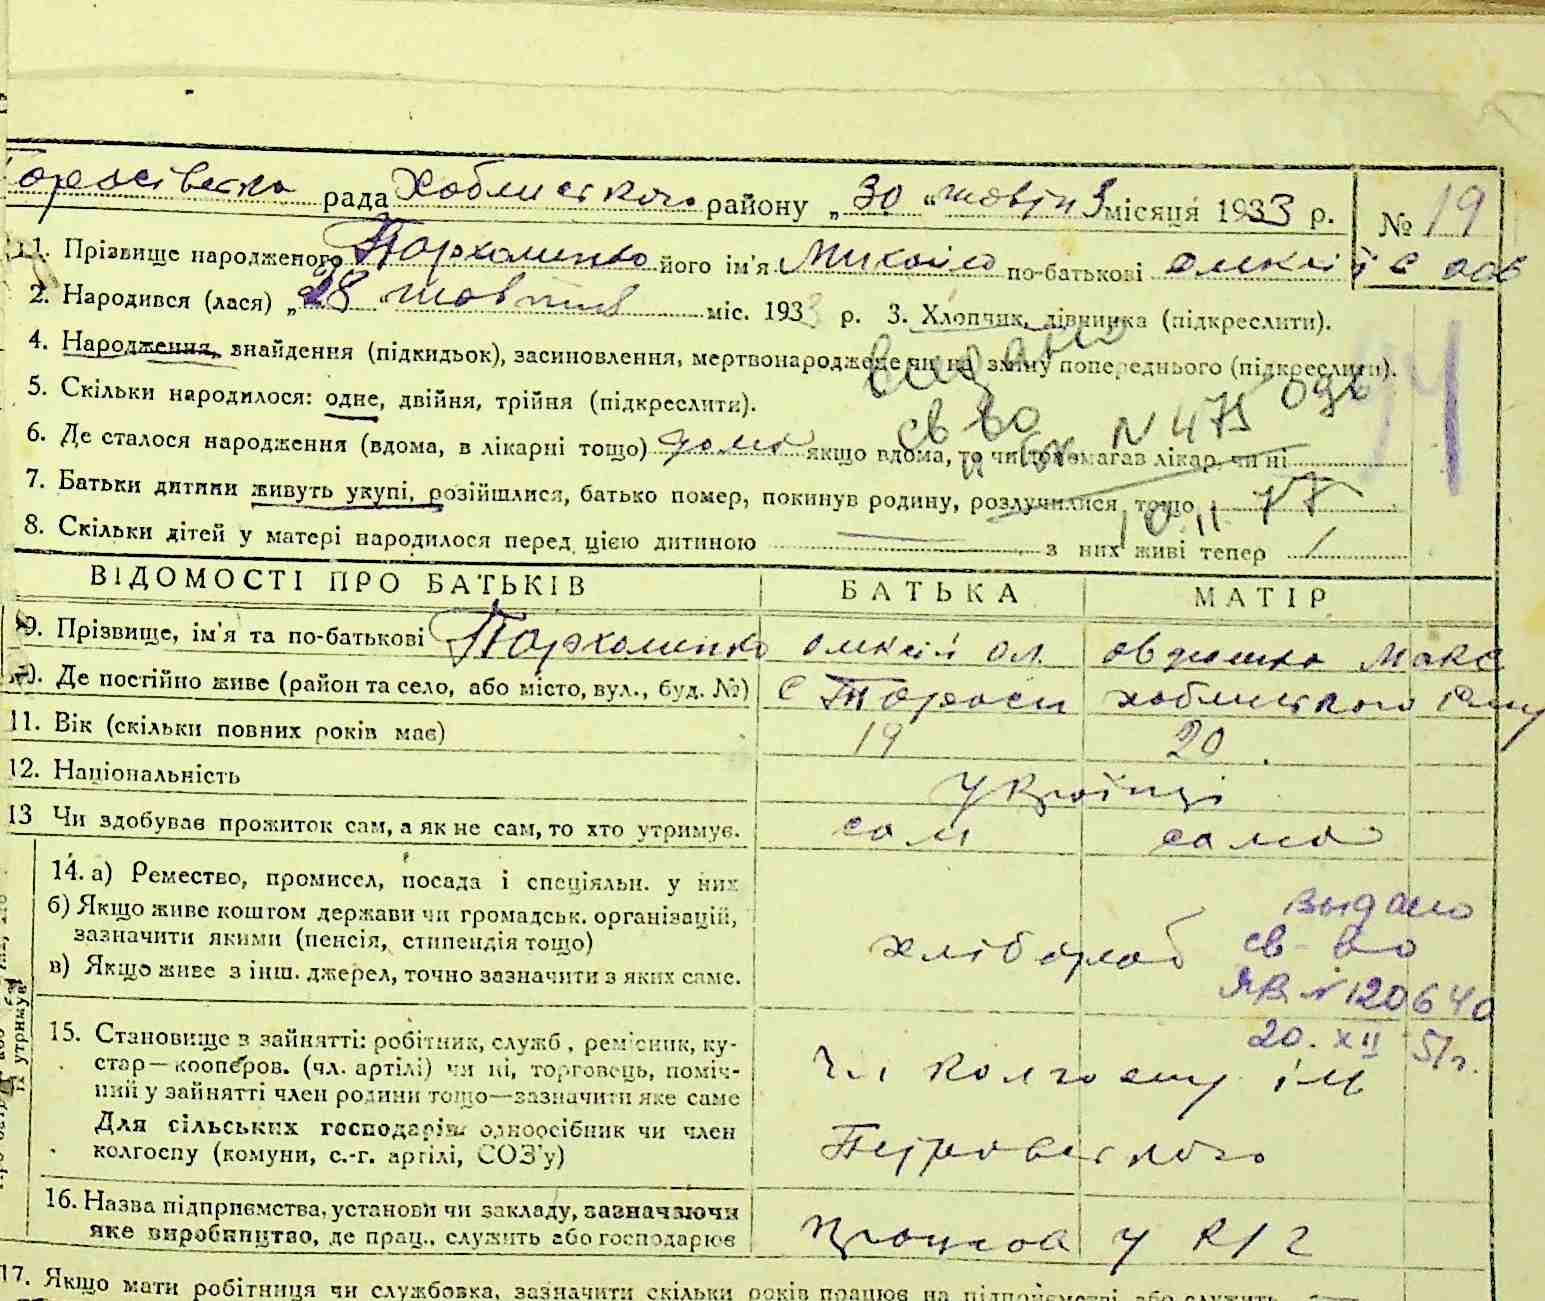 рада Хоблиського району „30“ жовтня місяця 1933 р. № 19
1. Прізвище народженого Пархоменко його ім'я Микола по-батькові
2. Народився (лася) „28“ жовтня міс. 1933 р. 3. Хлопчик, дівчинка (підкреслити).
4. Народження, знайдення (підкидьок), засиновлення, мертвонароджене чи на зміну попереднього (підкреслити).
5. Скільки народилося: одне, двійня, трійня (підкреслити).
6. Де сталося народження (вдома, в лікарні тощо) дома якщо вдома, то чи допомагав лікар, чи ні
7. Батьки дитини живуть укупі, розійшлися, батько помер, покинув родину, розлучилися тощо
8. Скільки дітей у матері народилося перед цією дитиною — з них живі тепер
видано
св во N 475
10 11 77
ВІДОМОСТІ ПРО БАТЬКІВ БАТЬКА МАТІР
9. Прізвище, ім'я та по-батькові Пархоменко Олексій Ол. Овдюшка Макс
Де постійно живе (район та село, або місто, вул., буд. №) с Тараси Хоблиського
11. Вік (скільки повних років має) 19 20
12. Національність Українці
13 Чи здобував прожиток сам, а як не сам, то хто утримує. сам сама
14. а) Ремество, промисел, посада і спеціяльн. у них
б) Якщо живе коштом держави чи громадськ. організацій,
зазначити якими (пенсія, стипендія тощо) хлібороб
в) Якщо живе з інш. джерел, точно зазначити з яких саме.
выдано
св-во
ЯВ № 120640
20. XII 51 г.
15. Становище в зайнятті: робітник, служб., ремісник, ку-
стар—кооперов. (чл. артілі) чи ні, торговець, поміч-
ний у зайнятті член родини тощо—зазначити яке саме
Для сільських господарів: одноосібник чи член
колгоспу (комуни, с.-г. артілі, СОЗ'у)
чл колгоспу ім
Петровського
16. Назва підприємства, установи чи закладу, зазначаючи
яке виробництво, де прац., служить або господарює працює у к/г
17. Якщо мати робітниця чи службовка, зазначити скільки років працює на підприємстві або служить